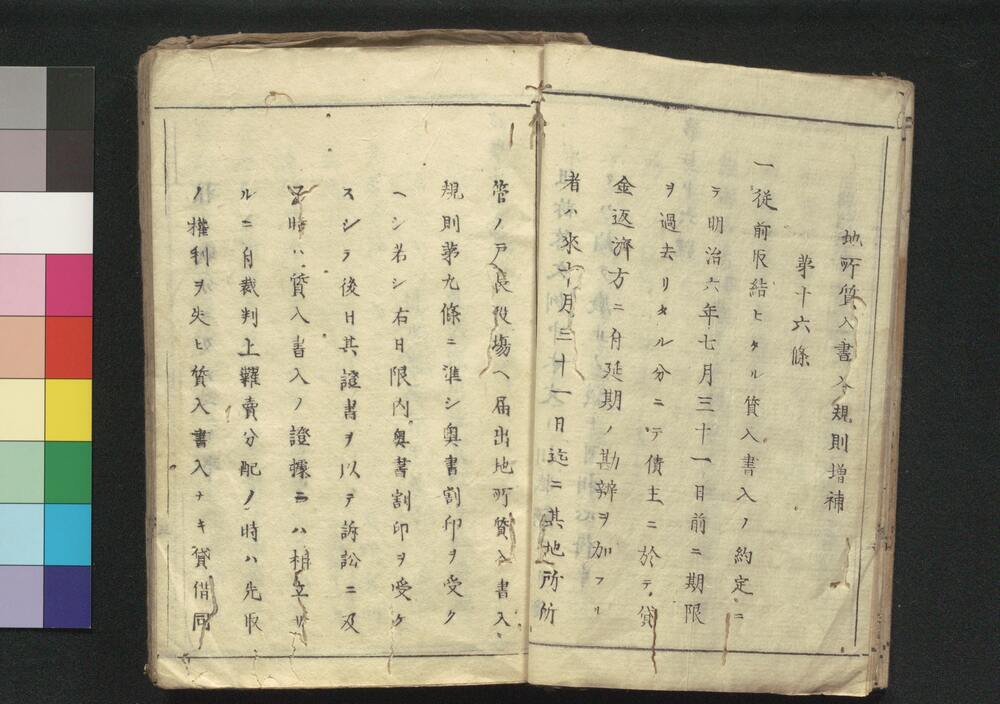 地所質入書入規則増補
第十六條
一従前取結ヒタル質入書入ノ約定ニ
テ明治六年七月三十一日前ニ期限
ヲ過去リタル分ニテ債主ニ於テ貸
金返濟方ニ付延期ノ勘辨ヲ加フル
者ハ來ル十月三十一日迄ニ其地所所
管ノ戸長役場ヘ届出地所質入書入
規則第九條ニ準シ奥書割印ヲ受ク
ヘシ若シ右日限内奥書割印ヲ受ケ
スシテ後日其證書ヲ以テ訴訟ニ及
フ時ハ質入書入ノ證據ニハ相立サ
ルニ付裁判上糶賣分配ノ時ハ先取
ノ權利ヲ失ヒ質入書入ナキ貸借同